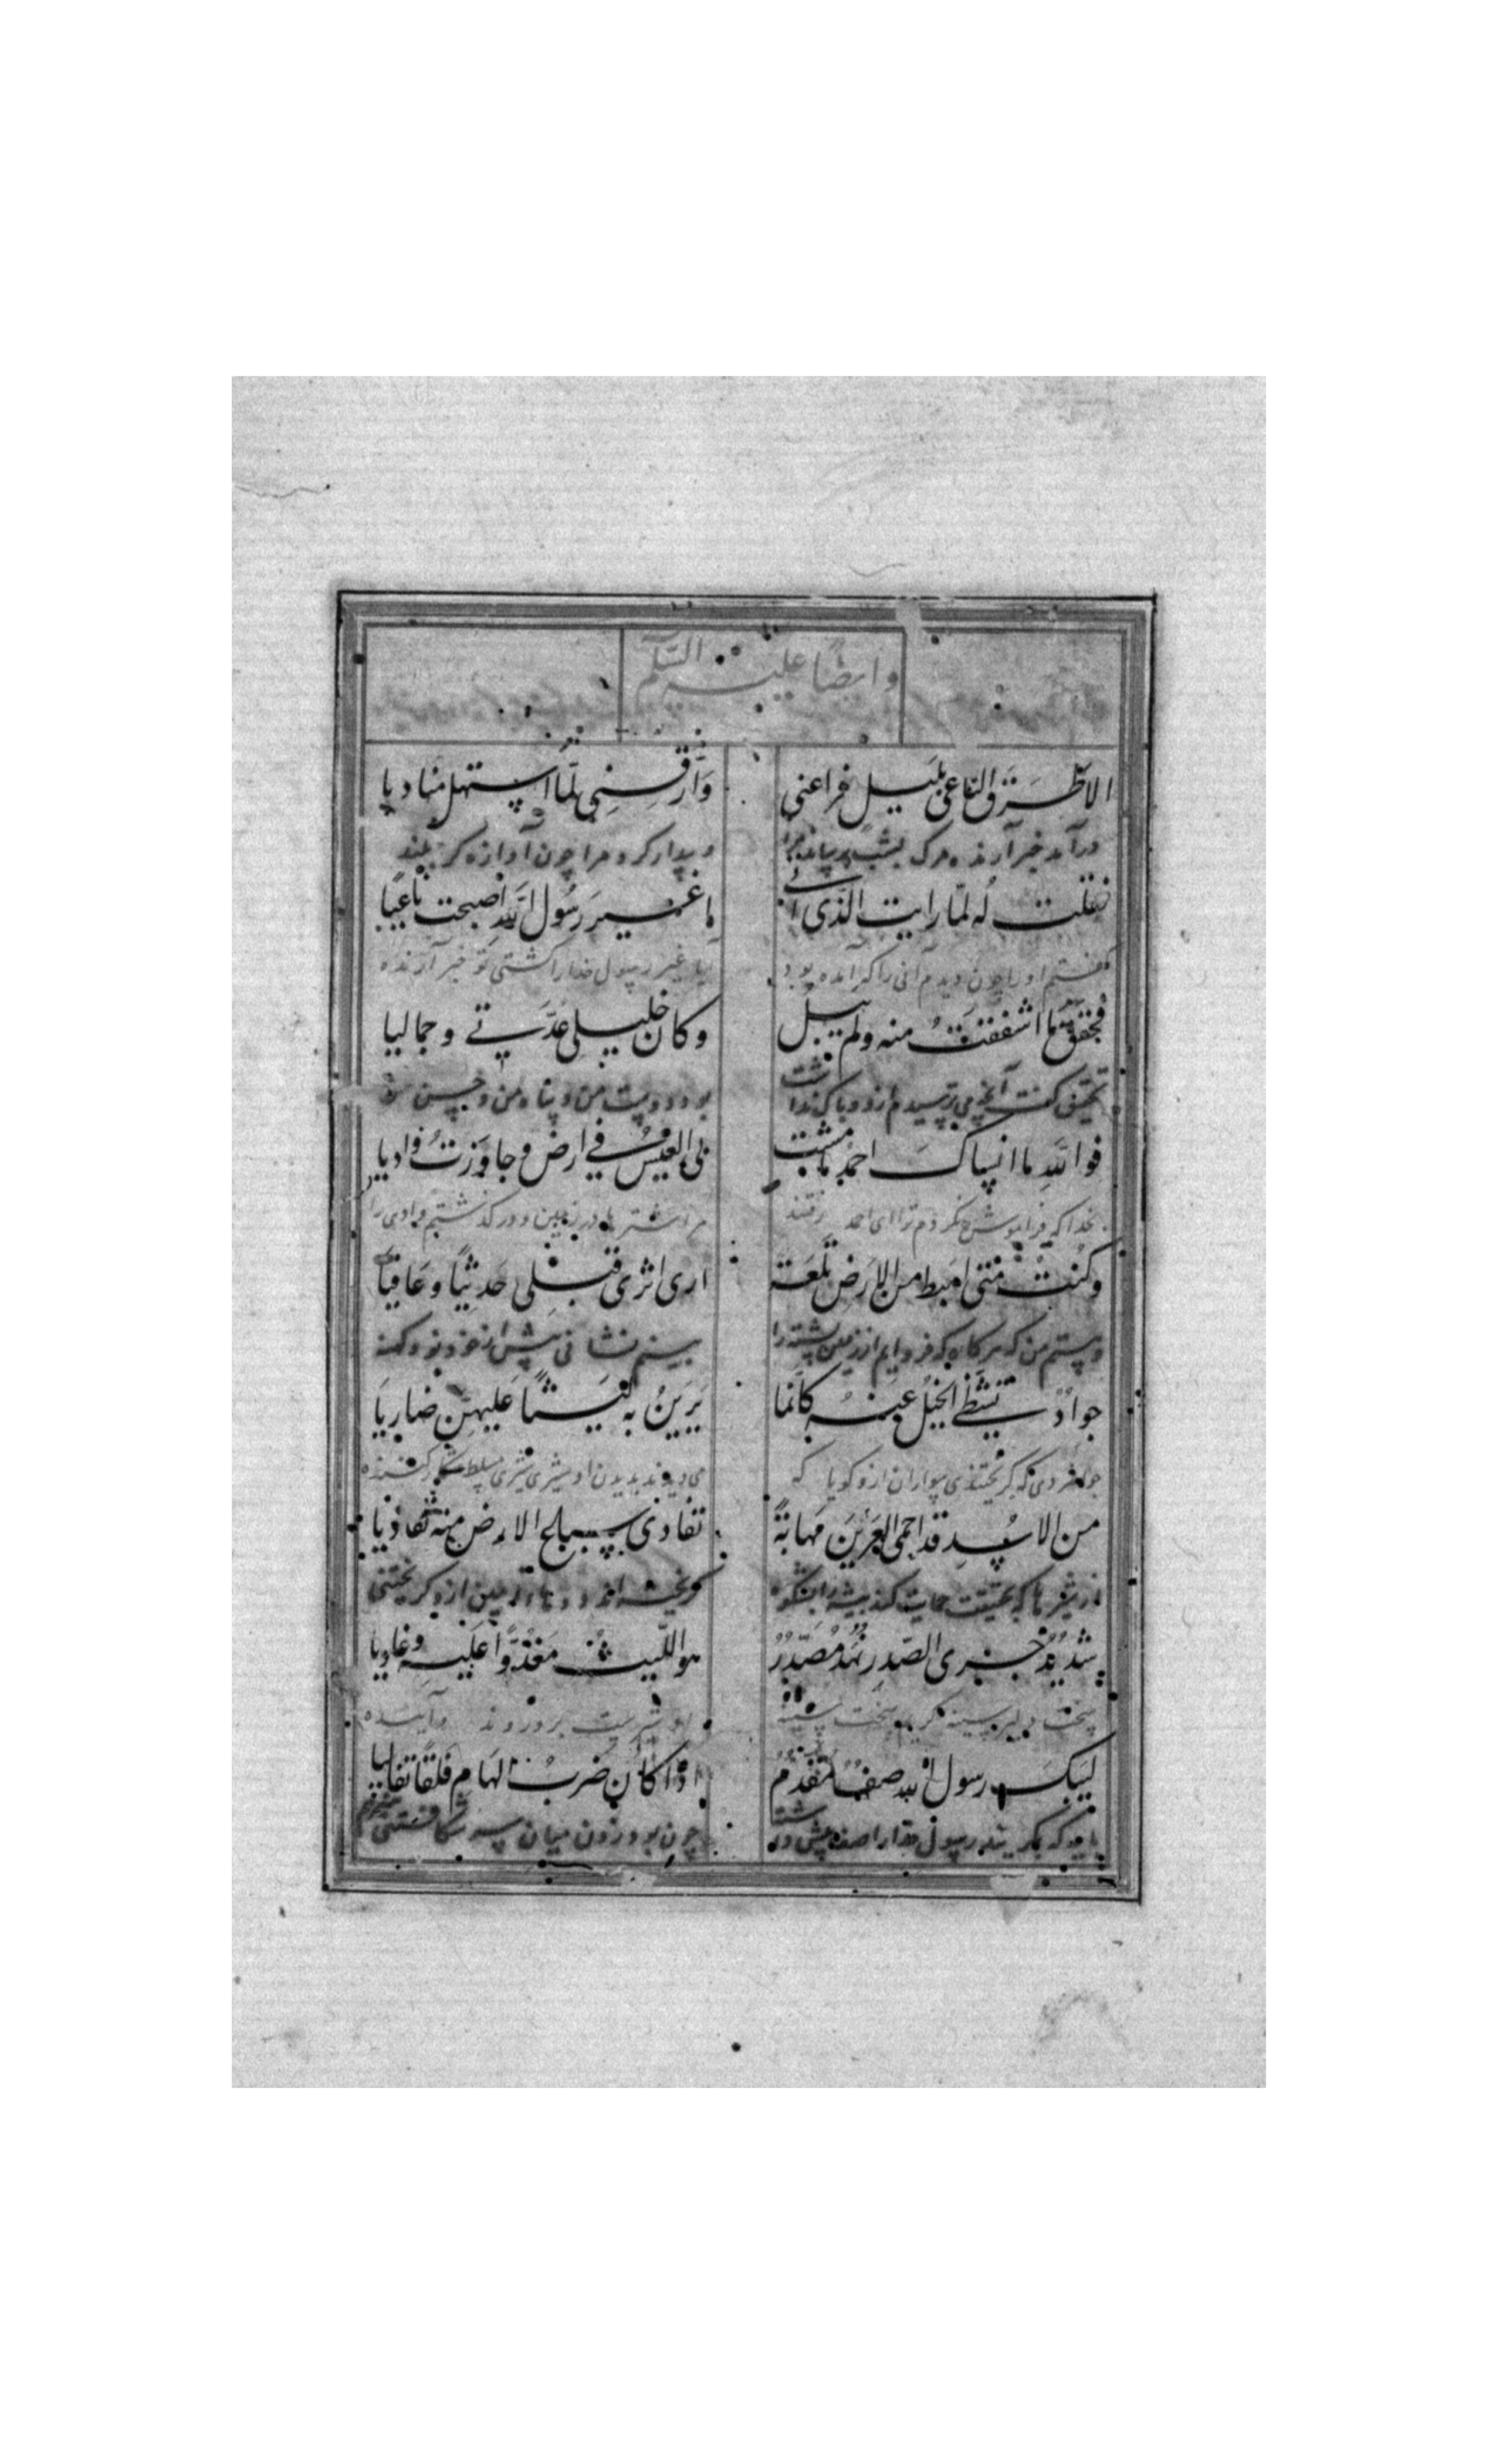 وايضًا عليه السّلم
الا طَرَقَ الناعى بلَيلٍ فراعنى وَارّقَنِى لمّا استهل مناديا
درآمد خبر آرنده مرك بشب پس ترسانيد مرا و بيدار كرد مرا چون آوازه كرد بلند
فقلت لُه لمّا رايت الذّى اتى اغيرَ رسُول اللهِ اصبحت ناعيًا
كفتم او را چون ديدم آنى را كه آمده بود آيا غير رسول خدا را كشتى تو خبر آرنده
فحقق ما اشفقتُ منه ولم يبل وكان خليلى عُدّتى وجماليا
تحقيق كفت آنچه مى ترسيدم ازو و باك نداشت بود دوست من و پناه من و حسن من
فوا اللهِ ما انساك احمدُ ما مشت بى العيسُ فى ارض وجاوَزتُ واديا
بخدا كه فراموش نكردم ترا اى احمد رفتند مرا شتر ها در زمين و در كذشتم وادى را
وكنتُ متى اهبط من الارَضِ تلعة ارى اثرى قبلى حَديثًا وعَافيًا
وهستم من كه هر كاه كه فرود ايم از زمين پشته را بينم نشانى پيش از خود نو و كهنه
جوادٌ تشظّى الخيلُ عنهُ كانّما يَرَينُ به لَيثًا عَليهنّ ضاريَا
جوانمردى كه كريختندى سواران ازو كويا كه مى ديدند بديدن او شيرى مسلط شكار كننده
من الاسُدِ قد احمى العَرَينَ مَهابةً تفادى سباع الارض منه تفاديا
از شير ها كه بحقيقت حمايت كند بيشه را بشكوه كريخته اند دد هاء زمين ازو كريختنى
شديدُ جرى الصّدرِ نهدٌ مُصَدّرٌ هو اللّيث مَغدُوًّا عَليَه وغاديا
سخت دلير سينه سخت سينه او شيرست برو روند و آينده
ليَبكِ رسول الله صفٌ مقدّمٌ اذا كان ضربُ الهام فلقًا تفاليا
بايد كه بكريند رسول خدا را صف پيش در چون بود زدن ميان سر شكافتنى